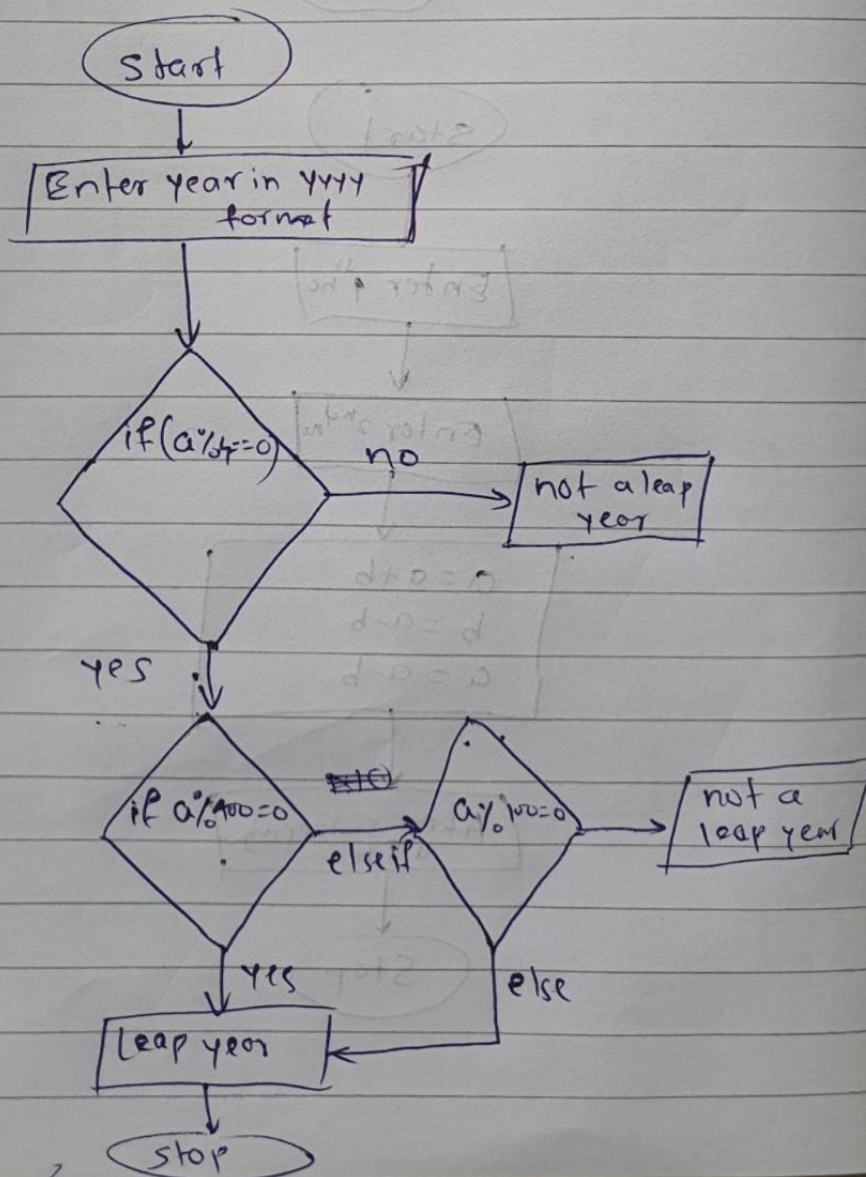 Start
Enter year in YYYY
format
if (a%4==0)
no
not a leap
year
yes
if a%400=0
elseif
a%100=0
not a
leap year
yes
else
Leap year
stop